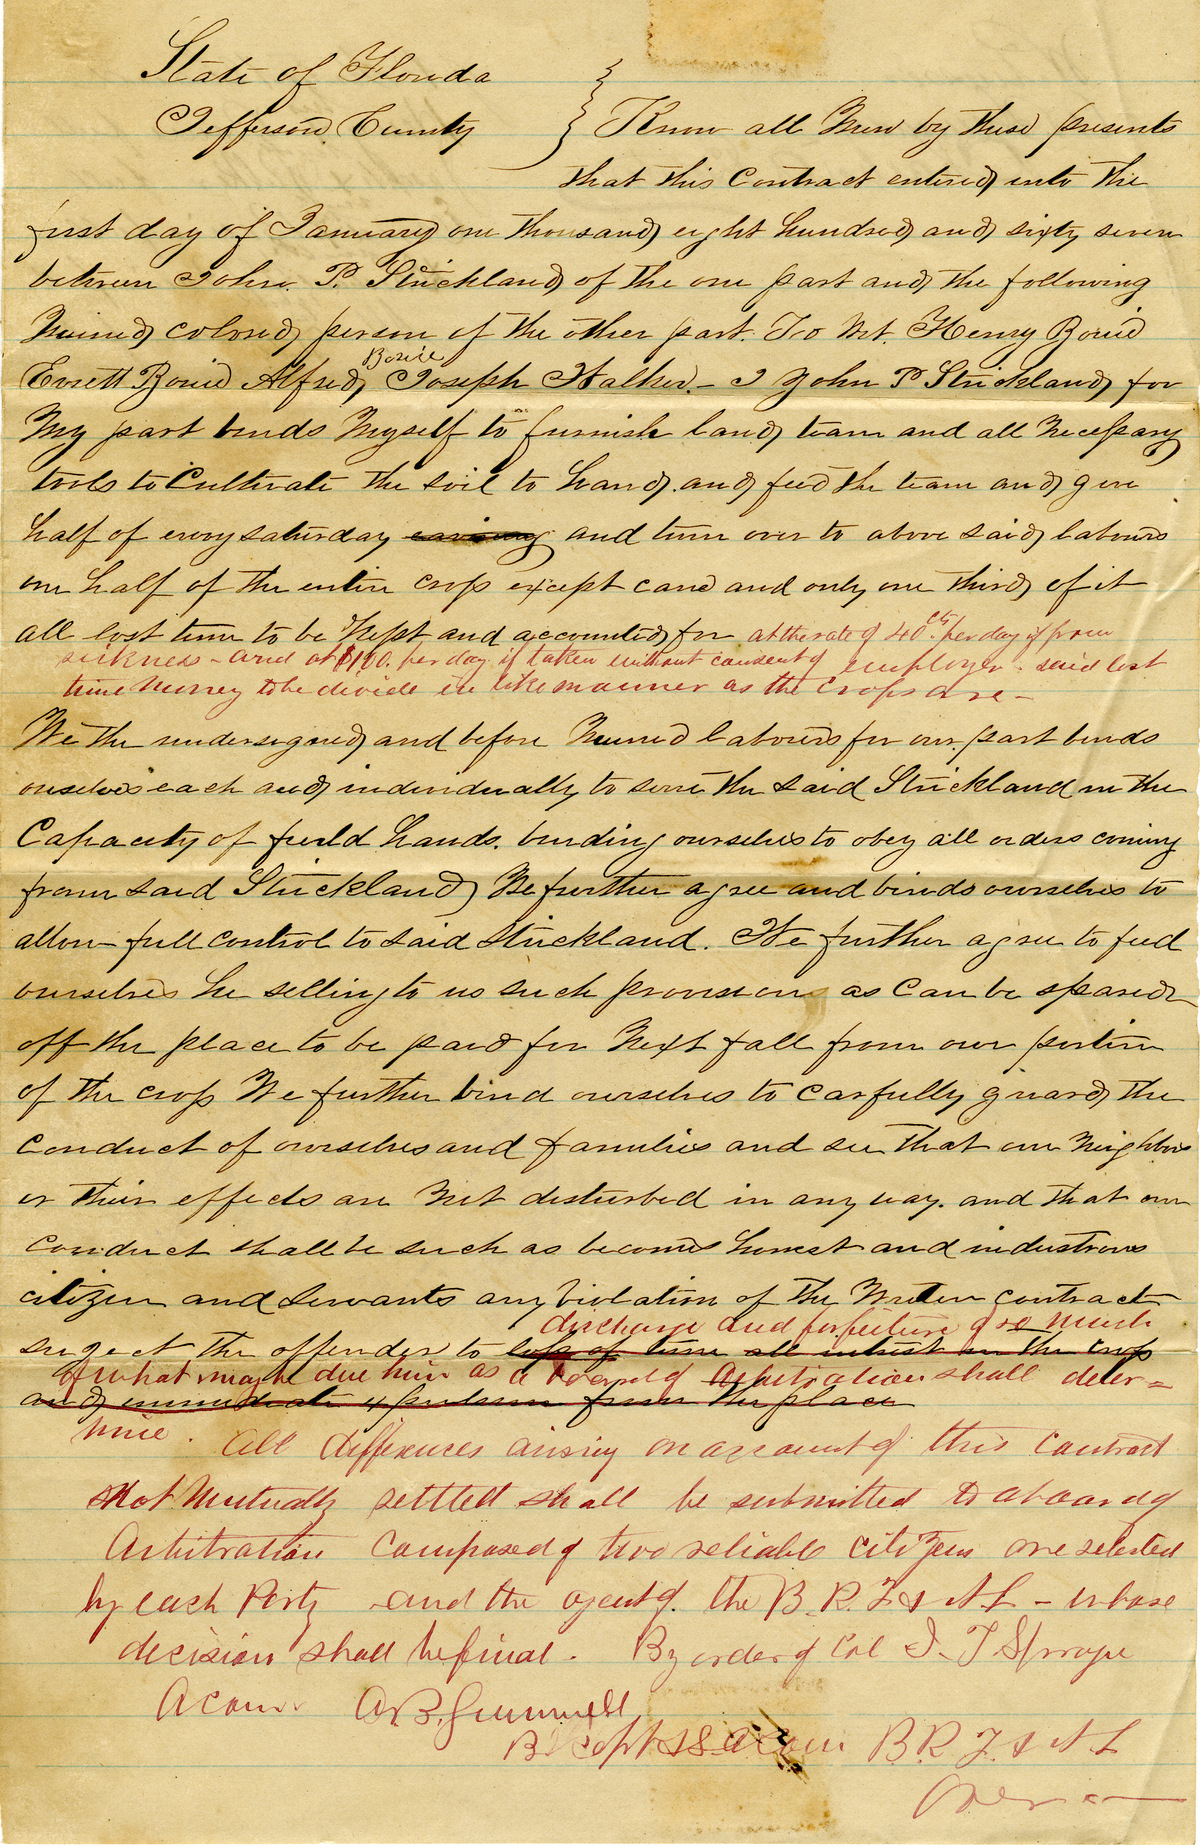 State of Florida
Jefferson County } Know all Men by these presents
that this Contract entered into the
first day of January one thousand eight hundred and sixty seven
between John. P. Strickland of the one part and the following
Named colored person of the other part. To Wt. Henry Bouie
Bouie
Everett Bouie Alfred Joseph Walker. - I John P Strickland, for
My part binds Myself to furnish land team and all Necessary
tools to Cultivate the soil to hand. and feed the team and give
half of every saturday and turn over to above said labours
one half of the entire crop except cane and only one third of it
all lost time to be Kept and accounted for at the rate of 40 cts. per day if from
sickness - and at $1.00. per day if taken without consent of employer - said lost
time Money to be divide in like manner as the crops are -
We the undersigned and before Named labourers for our part binds
ourselves each and individually to serve the said Strickland in the
Capacity of field hands. binding ourselves to obey all orders coming
from said Strickland, We further agree and binds ourselves to
allow full control to said Strickland. We further agree to feed
ourselves he selling to us such provisions as can be spared
off the place to be paid for Next fall from our portion
of the crop We further bind ourselves to carfully guard the
conduct of ourselves and families and see that our Neighbors
or their effects are Not disturbed in any way. and that our
conduct shall be such as becomes honest and industrous
citizen and servants any violation of the Writen contract
discharge and forfeiture of so much
sugect the offender to loss of time all intrest in the crop
of what may be due him as a Board of Arbitration shall deter=
and immediate expulsion from the place
mine. All differences arising on account of this contract
Not Mutually settled shall be submitted to a board of
Arbitration Composed of two reliable citizens one selected
by each Party and the agent of the B. R. F & A L - whose
decision shall be final. By order of Col J. T Sprague
A com A. B. Grunwell
B Capt & S. A Com B. R. F. & A L
Over